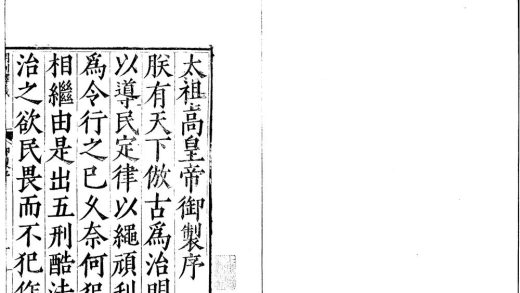 太祖高皇帝御製序
朕有天下倣古爲治明
以導民定律以繩頑刋
爲令行之已久奈何犯
相繼由是出五刑酷法
治之欲民畏而不犯作